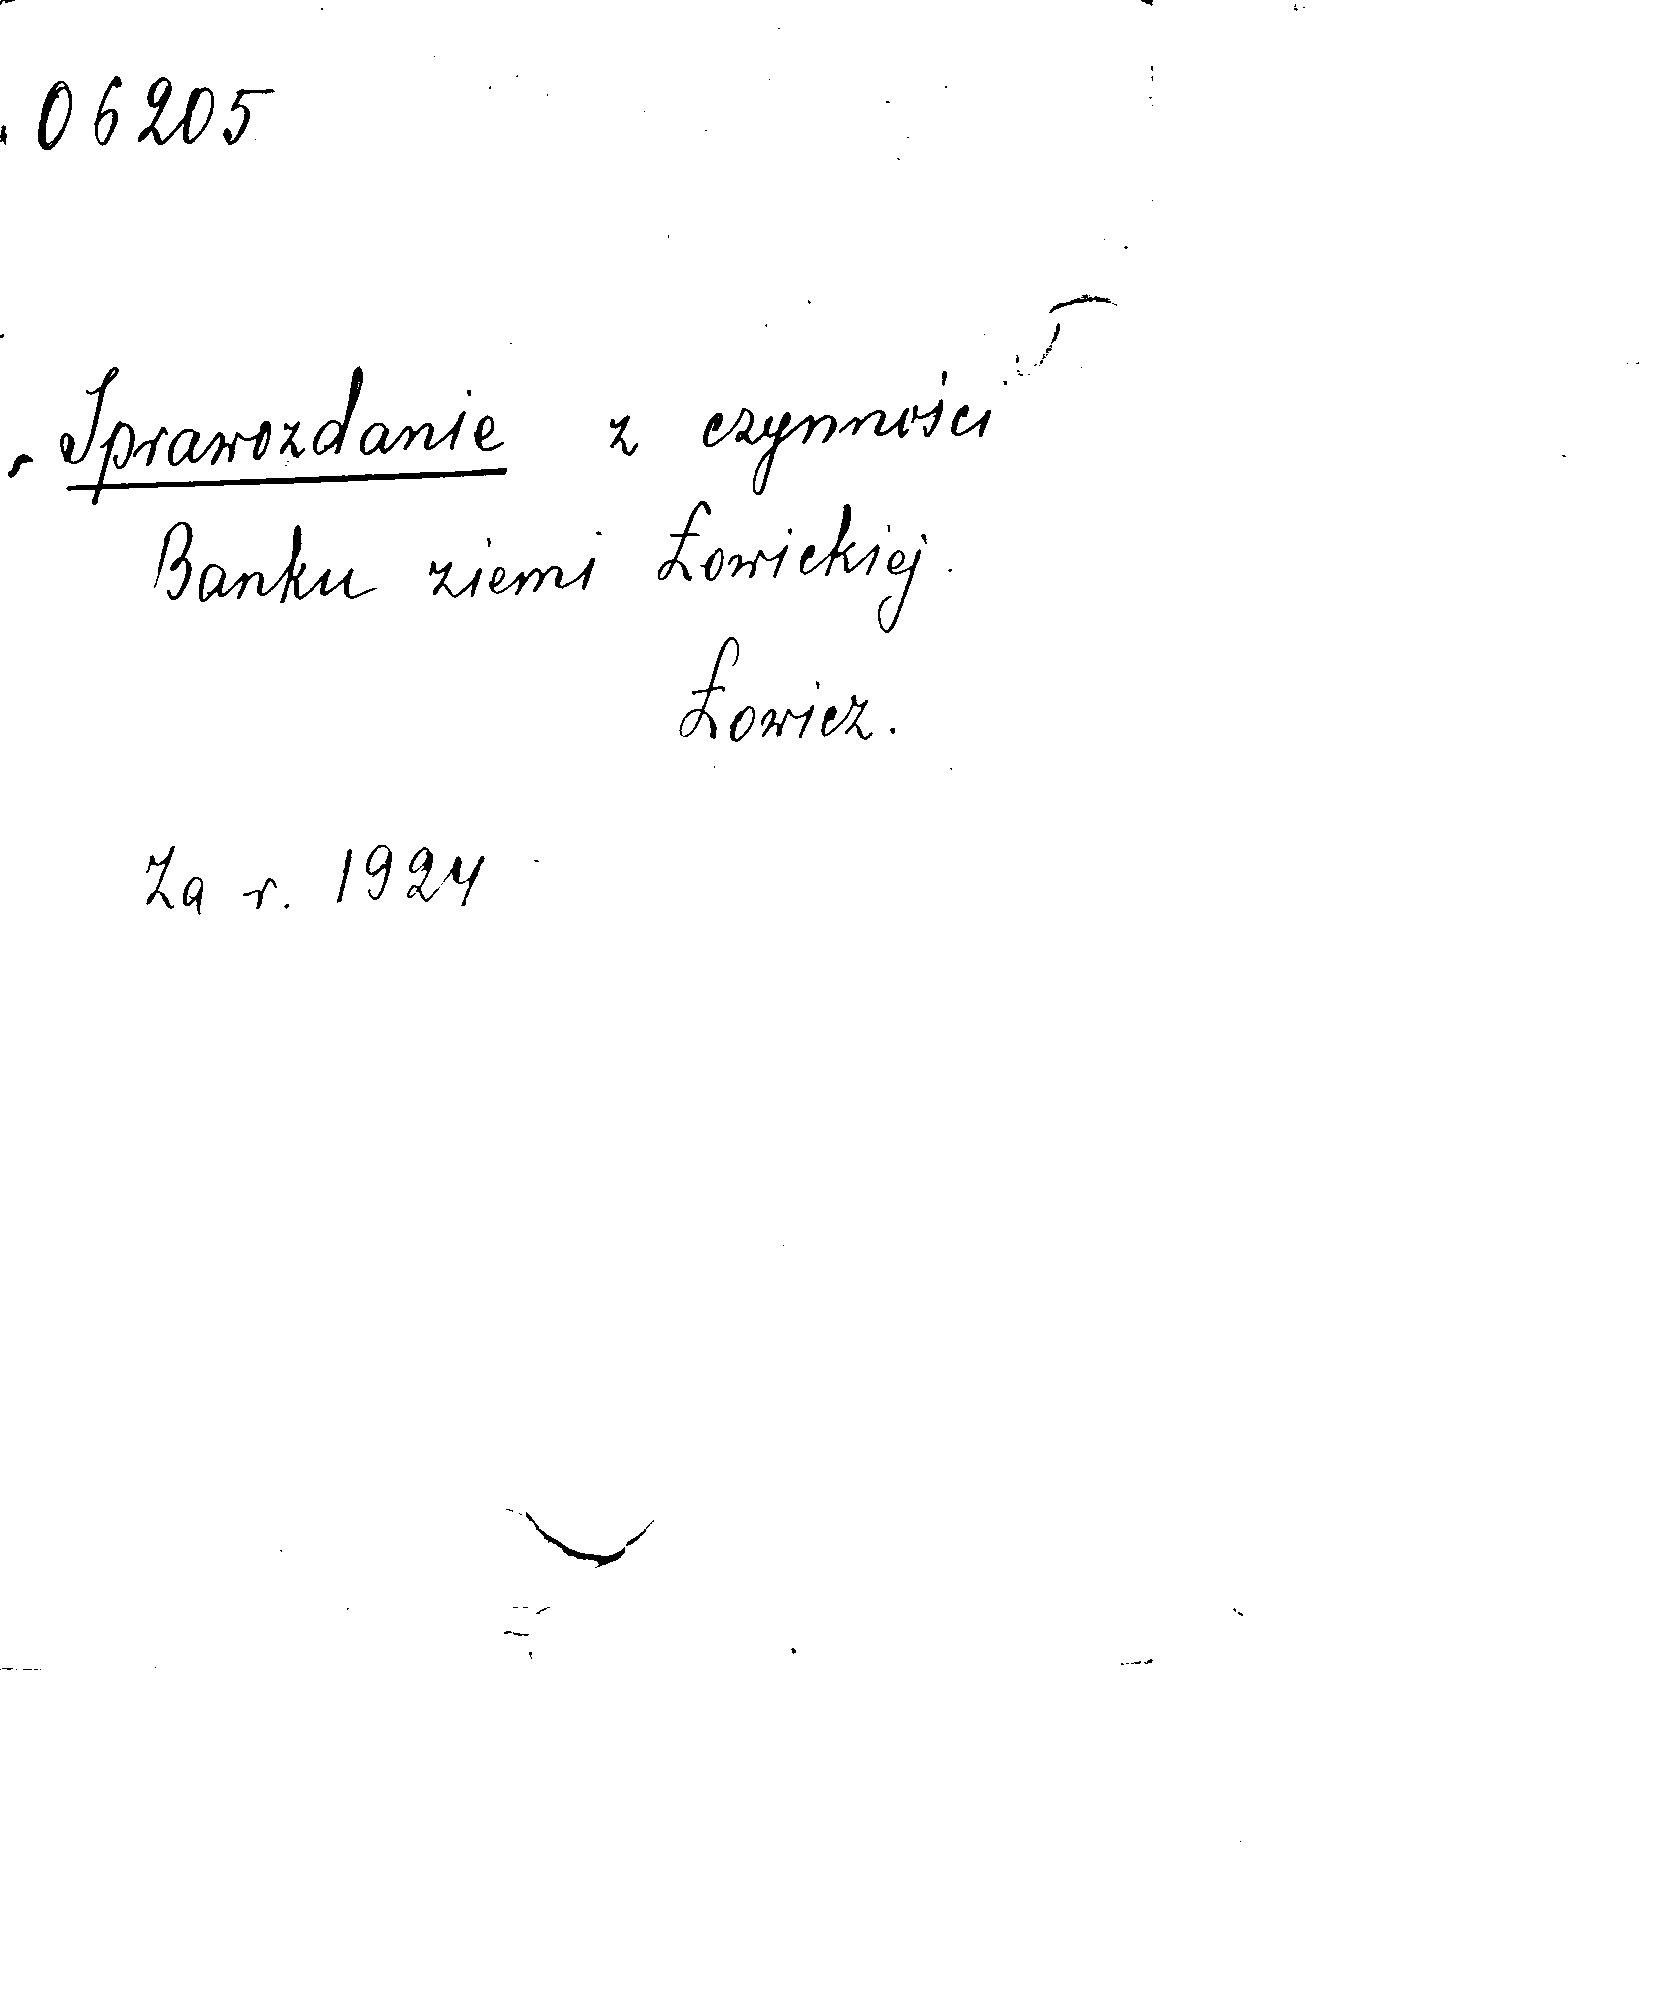 06205
Sprawozdanie z czynności
Banku ziemi Łowickiej.
Łowicz.
Za r. 1924